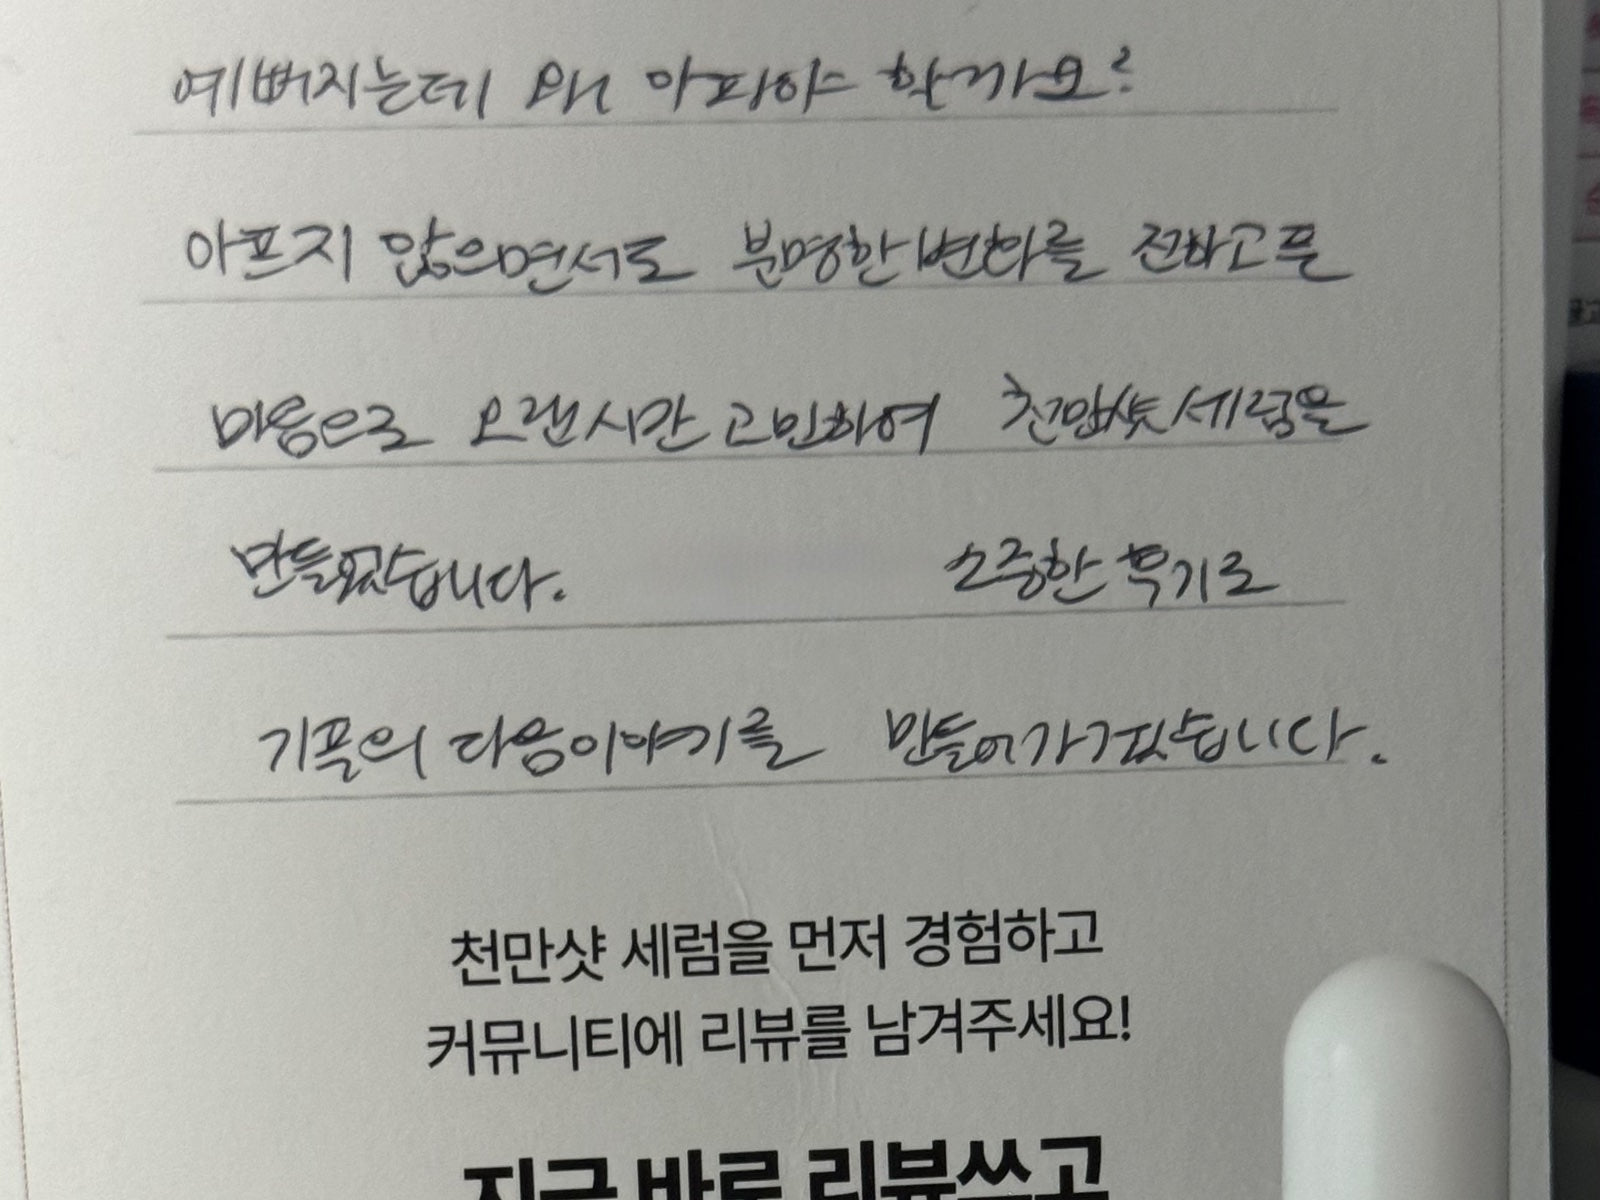 예뻐지는데 왜 아파야 할까요?
아프지 않으면서도 분명한 변화를 전하고픈
마음으로 오랜시간 고민하여 천만샷 세럼을
만들었습니다. 소중한 후기로
기풀의 다음이야기를 만들어가겠습니다.
천만샷 세럼을 먼저 경험하고
커뮤니티에 리뷰를 남겨주세요!
지금 바로 리뷰쓰고